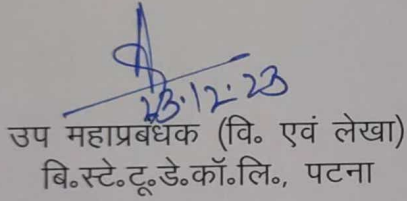 23.12.23
उप महाप्रबंधक (वि॰ एवं लेखा)
बि॰स्टे॰टू॰डे॰कॉ॰लि॰, पटना